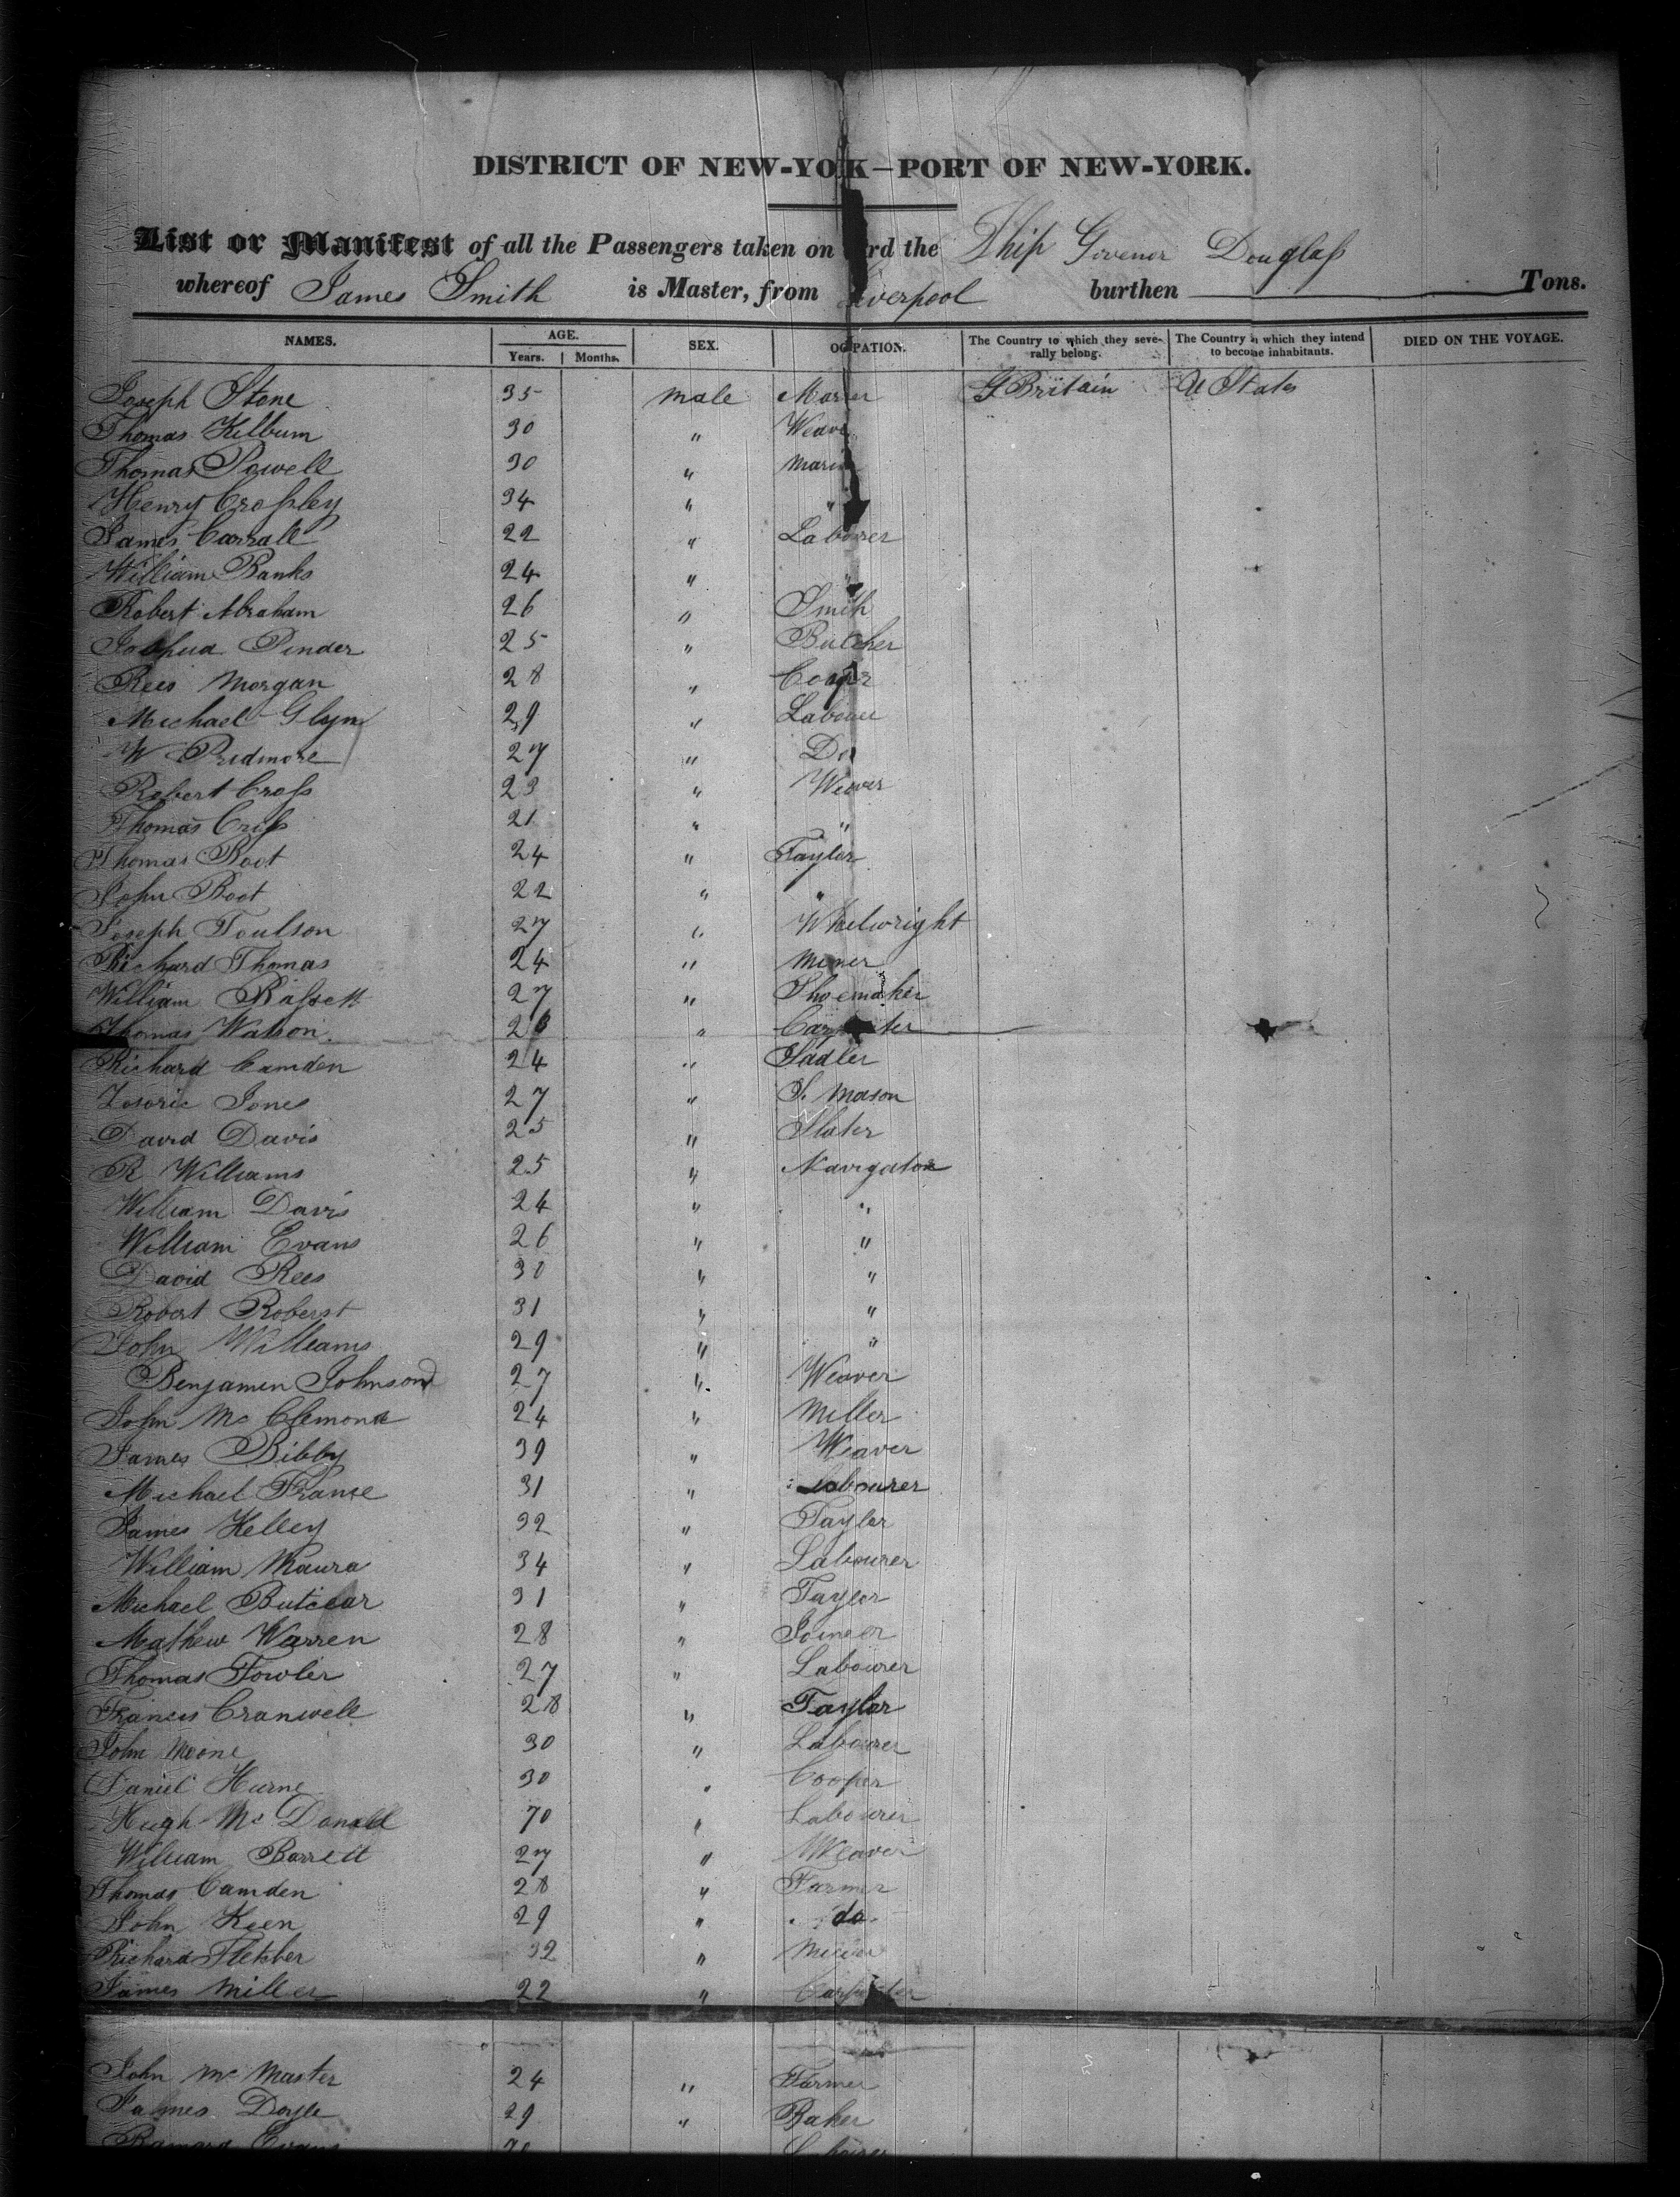 DISTRICT OF NEW-YO K—PORT OF NEW-YORK.
List or Manifest of all the Passengers taken on rd the Ship Govenor Douglass
whereof James Smith is Master, from Liverpool burthen Tons.
NAMES. AGE. SEX. OC PATION. The Country to which they severally belong. The Country in which they intend to become inhabitants. DIED ON THE VOYAGE.
Years. Months.
Joseph Stone 35 male G Britain U States
Thomas Kilburn 30 " Weaver
Thomas Powell 30 "
Henry Crossley 34 " "
James Carrall 22 " Labourer
William Banks 24 " "
Robert Abraham 26 " Smith
Joshua Pinder 25 " Butcher
Rees Morgan 28 " Cooper
Michael Glynn 29 " Labourer
W Pridmore 27 " Do
Robert Cross 23 " Weaver
Thomas 21 " "
Thomas Root 24 " Taylor
John Root 22 " "
Joseph Toulson 27 " Whelwright
Richard Thomas 24 " Miner
William Bassett 27 " Shoemaker
Thomas Watson " Carpenter
Richard Camden 24 " Sadler
Jones 27 " S. Mason
David Davis 25 " Slater
R Williams 25 " Navigator
William Davis 24 " "
William Evans 26 " "
David Rees 30 " "
Robert Roberst 31 " "
John Williams 29 " "
Benjamen Johnson 27 " Weaver
John Mc Clemond 24 " Miller
James Bibby 39 " Weaver
Michael France 31 " Labourer
James Kelley 32 " Taylor
William Maura 34 " Labourer
Michael 31 " Taylor
Mathew Warren 28 " Joineer
Thomas Fowler 27 " Labourer
Francis Cranwell 28 " Taylor
John Moone 30 " Labourer
Daniel Hurne 30 " Cooper
Hugh Mc Donald 70 " Labourer
William Barrett 27 " Weaver
Thomas Camden 28 " Farmer
John Keen 29 " do.
Richard Fletcher 32 "
James Miller 22 " Carpenter
John Mc Master 24 " Farmer
James Doyle 29 " Baker
Evans